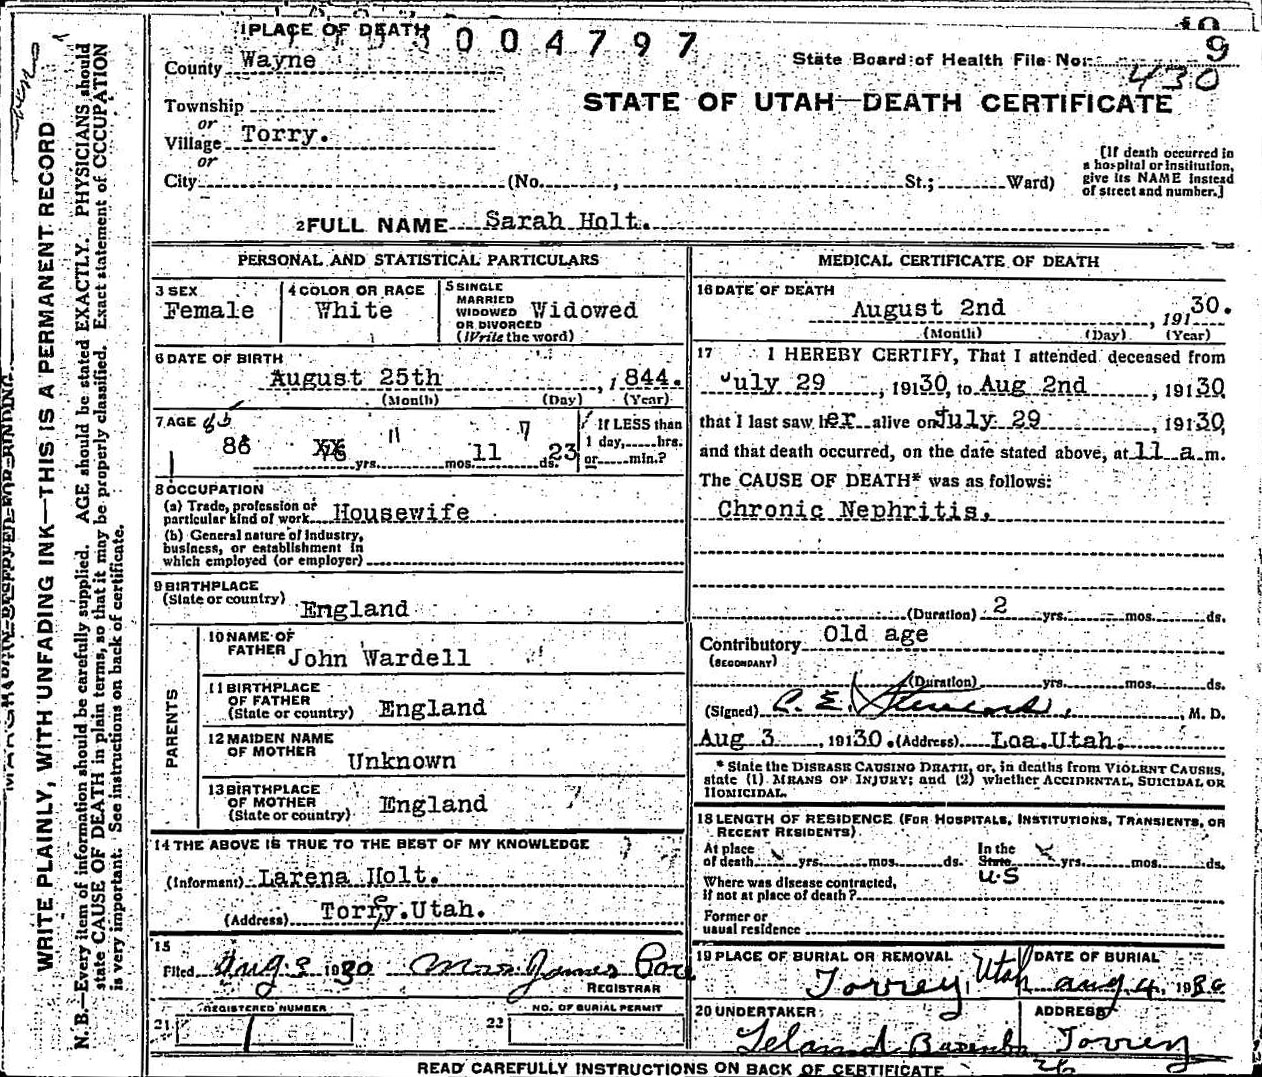 1 PLACE OF DEATH
3 0 0 4 7 9 7
9
County Wayne
State Board of Health File No.
430
Township
STATE OF UTAH—DEATH CERTIFICATE
or
Village Torry.
or
City (No. , St.; Ward)
[If death occurred in
a hospital or institution,
give its NAME instead
of street and number.]
2 FULL NAME Sarah Holt.
PERSONAL AND STATISTICAL PARTICULARS
3 SEX
Female
4 COLOR OR RACE
White
5 SINGLE
MARRIED
WIDOWED
OR DIVORCED
(Write the word)
Widowed
6 DATE OF BIRTH
August 25th , 1844.
(Month) (Day) (Year)
7 AGE 85
86 yrs. 11 mos. 11 7 ds. 23
If LESS than
1 day, hrs.
or min.?
8 OCCUPATION
(a) Trade, profession or
particular kind of work Housewife
(b) General nature of industry,
business, or establishment in
which employed (or employer)
9 BIRTHPLACE
(State or country) England
PARENTS
10 NAME OF
FATHER John Wardell
11 BIRTHPLACE
OF FATHER
(State or country) England
12 MAIDEN NAME
OF MOTHER
Unknown
13 BIRTHPLACE
OF MOTHER
(State or country) England
14 THE ABOVE IS TRUE TO THE BEST OF MY KNOWLEDGE
(Informant) Larena Holt.
(Address) Torry.Utah.
15
Filed Aug 3 1930 Mrs. James Pace
REGISTRAR
REGISTERED NUMBER
21 1
NO. OF BURIAL PERMIT
22
MEDICAL CERTIFICATE OF DEATH
16 DATE OF DEATH
August 2nd , 19130.
(Month) (Day) (Year)
17 I HEREBY CERTIFY, That I attended deceased from
July 29 , 19130, to Aug 2nd , 19130
that I last saw her alive on July 29 , 19130,
and that death occurred, on the date stated above, at 11 a.m.
The CAUSE OF DEATH* was as follows:
Chronic Nephritis.
(Duration) 2 yrs. mos. ds.
Contributory Old age
(SECONDARY)
(Duration) yrs. mos. ds.
(Signed) C. E. , M. D.
Aug 3 , 19130. (Address) Loa.Utah.
* State the DISEASE CAUSING DEATH, or, in deaths from VIOLENT CAUSES,
state (1) MEANS OF INJURY; and (2) whether ACCIDENTAL, SUICIDAL OR
HOMICIDAL.
18 LENGTH OF RESIDENCE (FOR HOSPITALS, INSTITUTIONS, TRANSIENTS, OR
RECENT RESIDENTS)
At place
of death yrs. mos. ds.
In the
State yrs. mos. ds.
U S
Where was disease contracted,
if not at place of death?
Former or
usual residence
19 PLACE OF BURIAL OR REMOVAL
Torrey, Utah
DATE OF BURIAL
Aug. 4, 1930
20 UNDERTAKER
Leland
ADDRESS
Torrey
26
READ CAREFULLY INSTRUCTIONS ON BACK OF CERTIFICATE
MARGIN RESERVED FOR BINDING
WRITE PLAINLY, WITH UNFADING INK—THIS IS A PERMANENT RECORD
N.B.—Every item of information should be carefully supplied. AGE should be stated EXACTLY. PHYSICIANS should
state CAUSE OF DEATH in plain terms, so that it may be properly classified. Exact statement of OCCUPATION
is very important. See instructions on back of certificate.